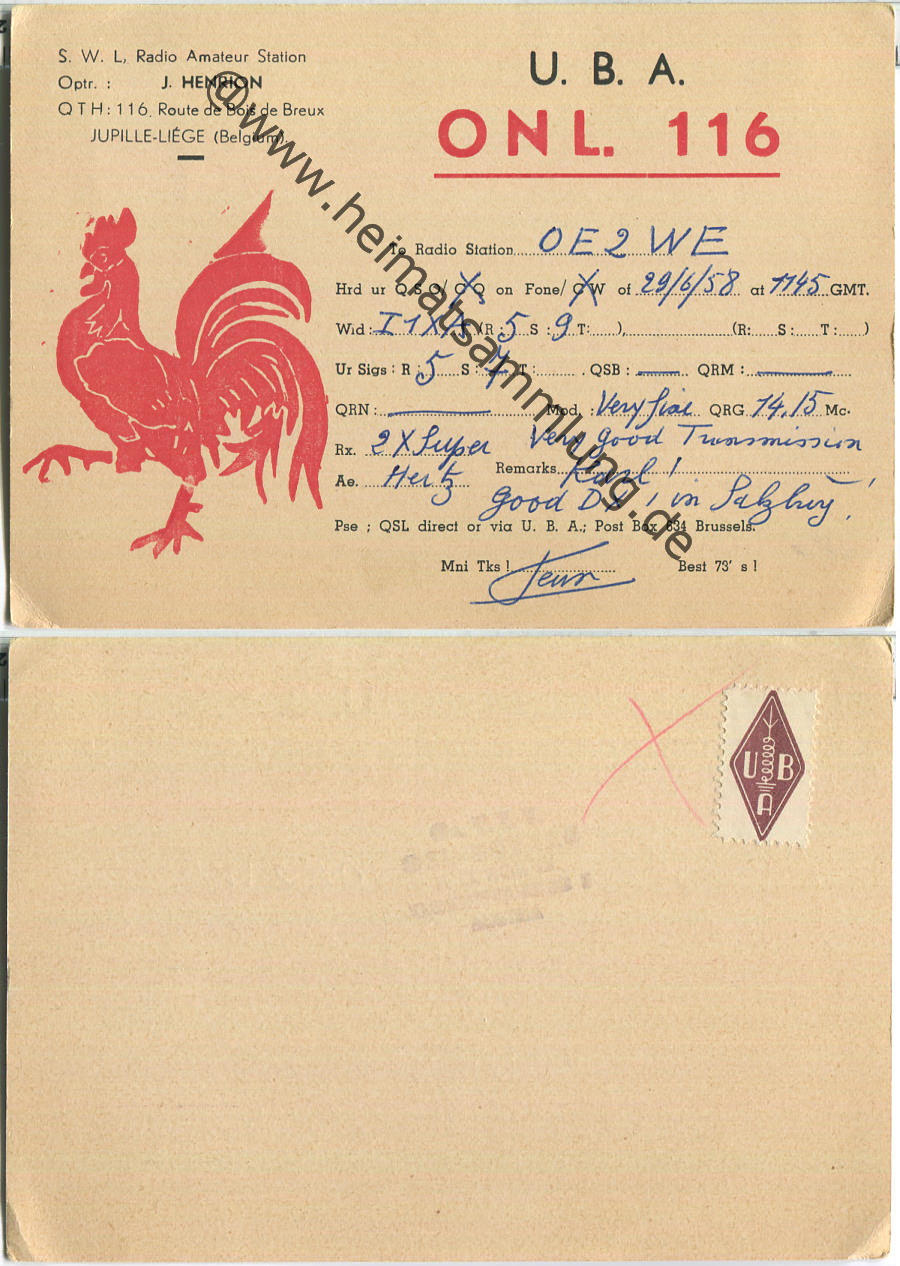 S. W. L, Radio Amateur Station
Optr. : J. HENRION
QTH: 116, Route de Bois de Breux
JUPILLE-LIÉGE (Belgium)
U. B. A.
ONL. 116
To Radio Station OE2WE
Hrd ur Q.S.O/ C Q on Fone/ C W of 29/6/58 at 1145 GMT.
Wid : I1XA (R : 5 S : 9 T: ), (R: S: T: )
Ur Sigs : R : 5 S : T: . QSB : — QRM : —
QRN : — Mod. : Very fine QRG 14.15 Mc.
Rx. 2 X Super Very good Transmission
Ae. Hertz Remarks Karl !
Good DX ! in Salzburg !
Pse ; QSL direct or via U. B. A.; Post Box 634 Brussels.
Mni Tks ! Best 73' s !
@www.heimatsammlung.de
U B
A